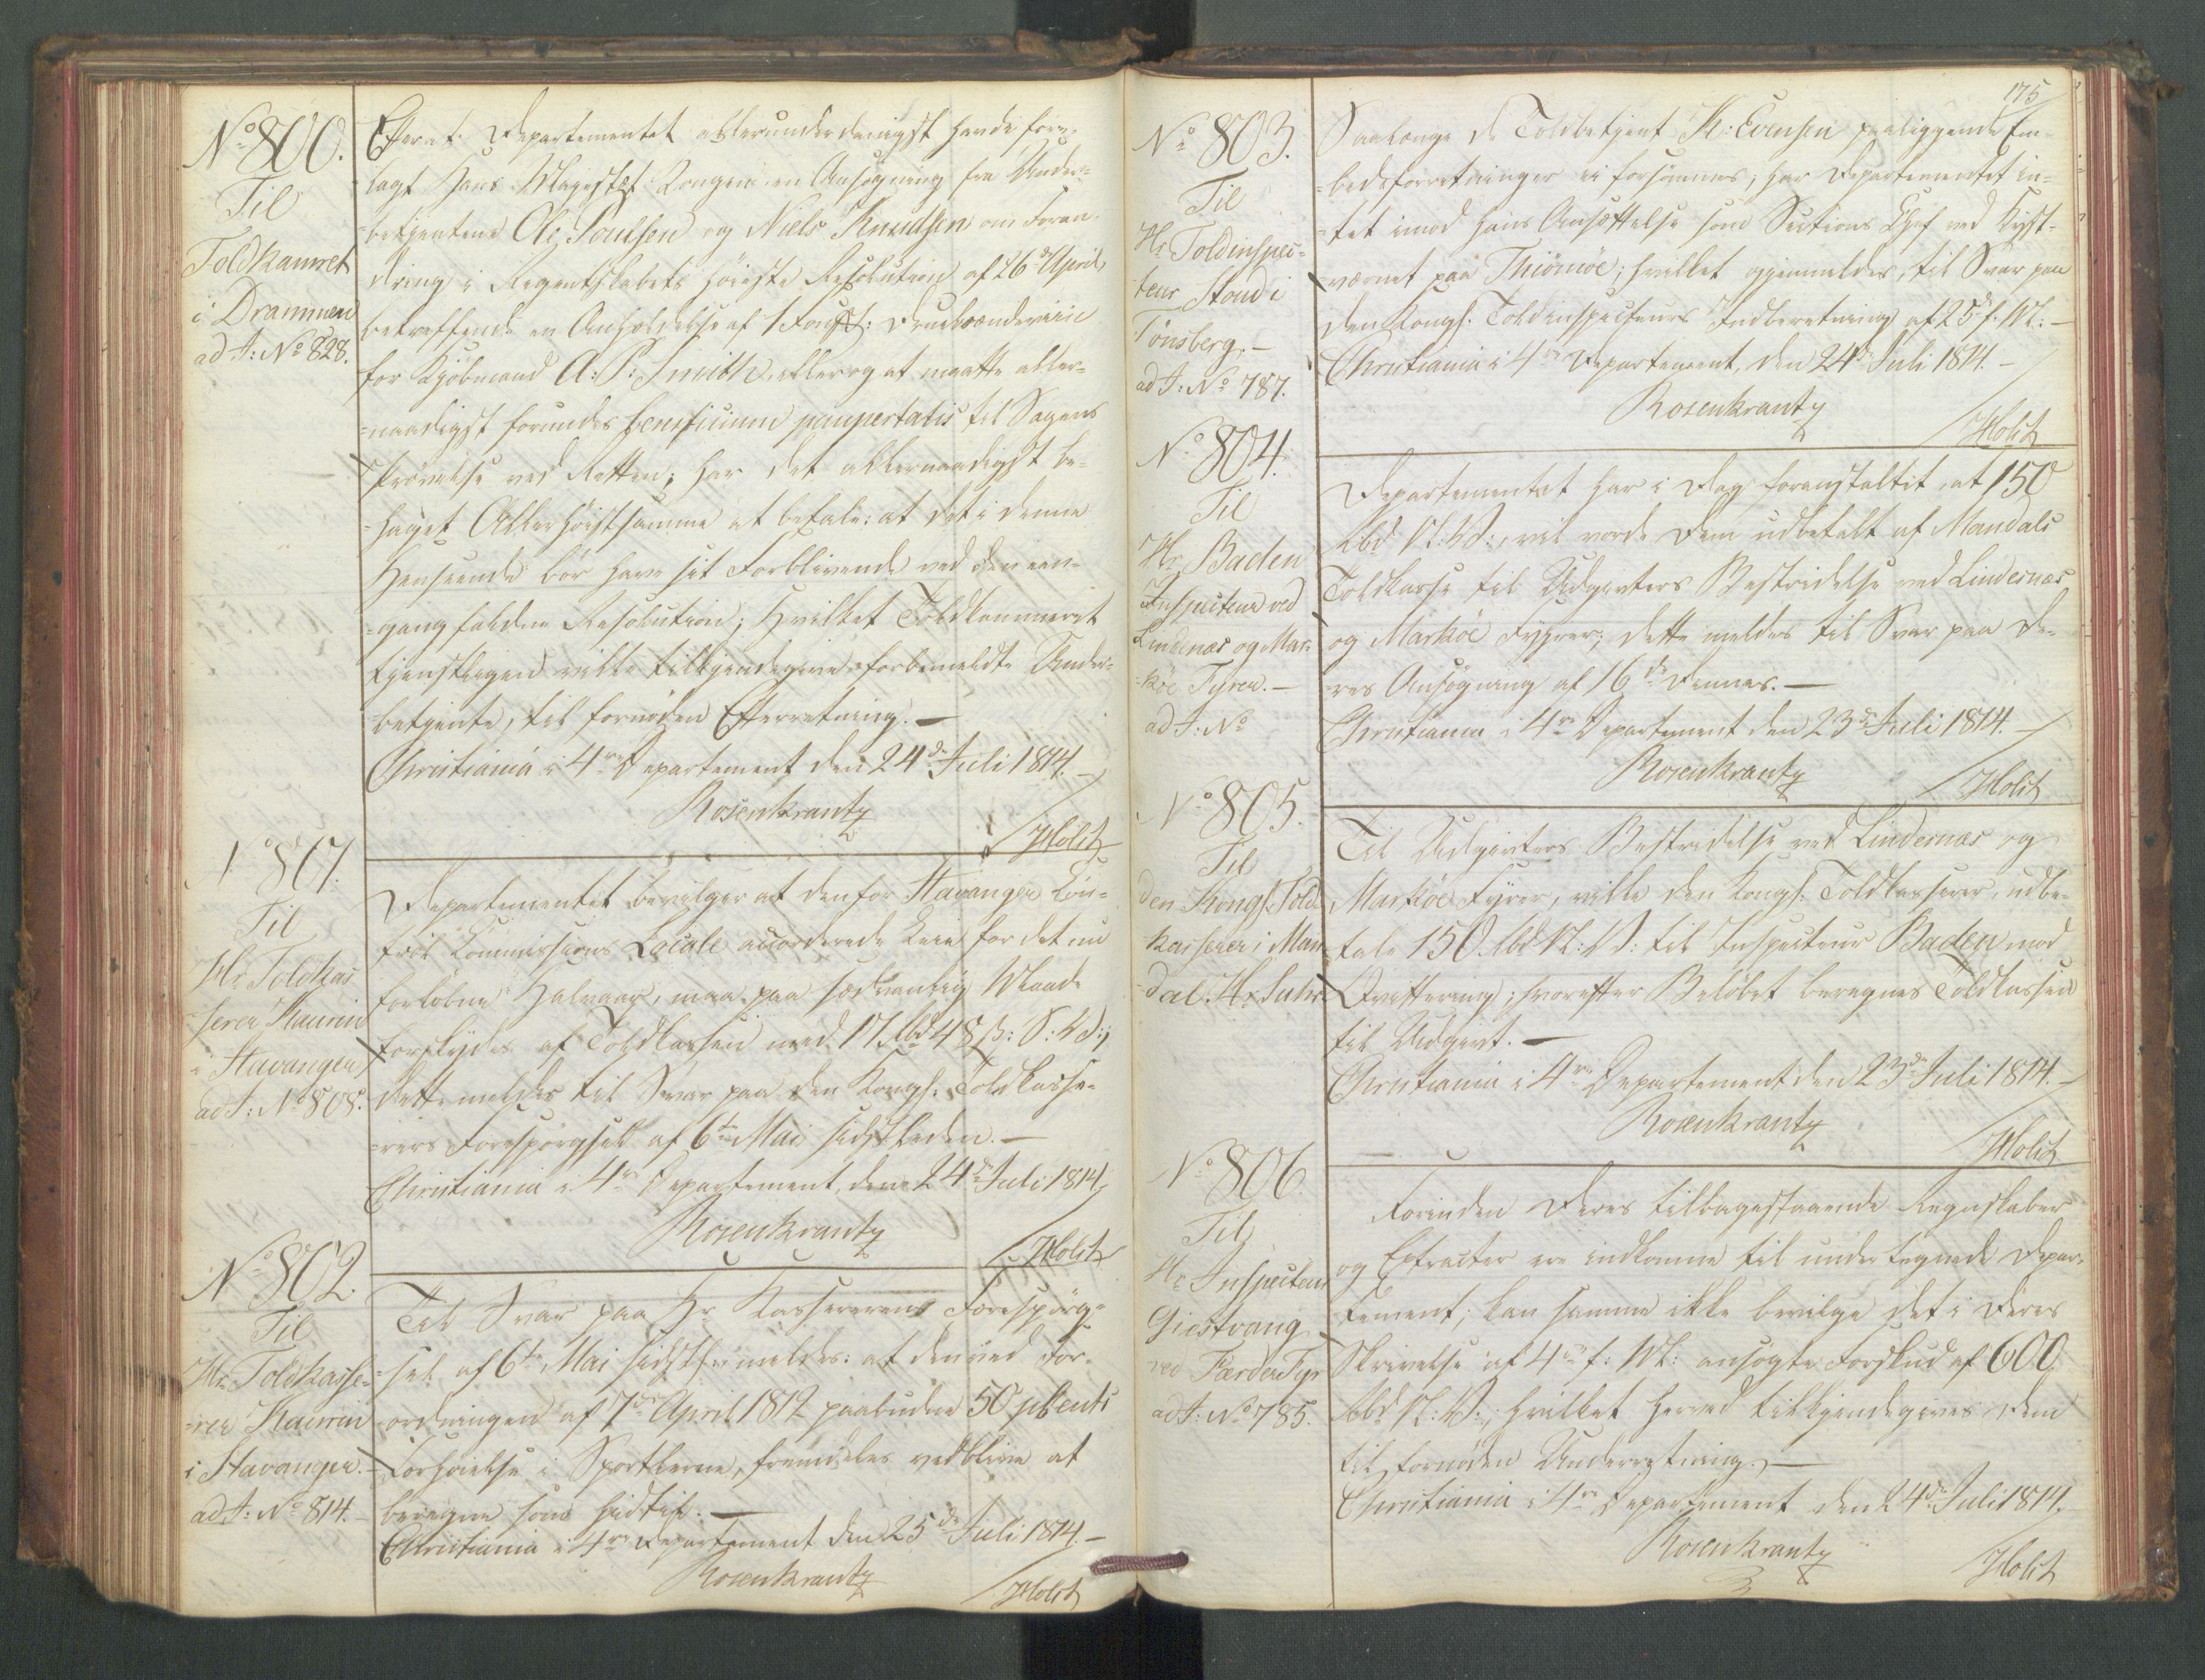 No 800.
Til
Toldkamret
i Drammen
ad J: No 828.
Efterat Departementet allerunderdanigst havde fore-
lagt Hans Majestæt Kongen en Ansøgning fra Under-
betjentene Ole Poulsen og Niels Knudsen om Foran-
dring i Regentskabets høieste Resolution af 26de April,
betreffende en Anholdelse af 1 Brændeviin
for Kjøbmand A: P: Smith, eller og at maatte aller-
naadigst forundes beneficium paupertatis til Sagens
Prøvelse ved Retten; har det allernaadigst be-
haget Allerhøistsamme at befale: at det i denne
Henseende bør have sit Forblivende ved den een-
gang faldne Resolution; Hvilket Toldkammeret
tjenstligen vilde tilkjendegive forbemeldte Under-
betjente, til fornøden Efterretning. —
Christiania i 4re Departement den 24de Juli 1814. —
Rosenkrantz
/Holst
No 801.
Til
Hr Toldkas
serer Kaurin
i Stavanger
ad J: No 808.
Departementet bevilger at den for Stavanger Con-
trib Commissions Locale accorderede Leie for det nu
forløbne Halvaar, maa paa sædvanlig Maade
forskydes af Toldkassen med 17 Rbd 48 ß: S: V:;
dette meldes til Svar paa den Kongl: Toldkasse-
rers Forespørgsel af 6te Mai sidstleden. —
Christiania i 4re Departement, den 24de Juli 1814,
Rosenkrantz
/Holst
No 802.
Til
Hr Toldkasse-
rer Kaurin
i Stavanger. —
ad J: No 814. —
Til Svar paa Hr Kassererens Forespørg-
sel af 6te Mai sidstl: meldes: at den ved For-
ordningen af 7de April 1812 paabudne 50 pCents
Forhøielse i Sportlerne, fremdeles vedblive at
beregne som hidtil. —
Christiania i 4re Departement den 25de Juli 1814. —
Rosenkrantz
/Holst
175
No 803.
Til
Hr Toldinspec-
teur Stoud i
Tönsberg. —
ad J: No 787.
Saalænge de Toldbetjent K: Evensen paaliggende Em-
bedsforretninger ei forsømmes, har Departementet in-
tet imod Hans Ansættelse som Sections Chef ved Kyst-
værnet paa Thiömöe; hvilket gjenmeldes, til Svar paa
den Kongl. Toldinspecteurs Indberetning af 25de f: M: —
Christiania i 4re Departement, den 24de Juli 1814. —
Rosenkrantz
/Holst
No 804.
Til
Hr Baden
Inspecteur ved
Lindesnæs og Mar-
köe Fyrer. —
ad J: No
Departementet har i Dag foranstaltet, at 150
Rbd N: V:, vil vorde Dem udbetalt af Mandals
Toldkasse til Udgivters Bestridelse ved Lindesnæs
og Markøe Fyrer; dette meldes til Svar paa De-
res Ansøgning af 16de dennes. —
Christiania i 4re Departement den 23de Juli 1814. —
Rosenkrantz
/Holst
No 805.
Til
den Kongl. Told
kasserer i Man
dal. Hr Suhr
Til Udgivters Bestridelse ved Lindesnæs og
Markøe Fyrer, ville den Kongl: Toldkasserer, udbe-
tale 150 Rbd N: V: til Inspecteur Baden mod
Qvittering; hvorefter Beløbet beregnes Toldkassen
til Udgivt. —
Christiania i 4re Departement den 23de Juli 1814. —
Rosenkrantz
/Holst
No 806
Til
Hr Inspecteur
Giestvang
ved Færder Fyr
ad J: No 785.
Forinden Deres tilbagestaaende Regnskaber
og Extracter ere indkomne til undertegnede Depar-
tement, kan samme ikke bevilge det i Deres
Skrivelse af 4de f: M: ansøgte Forskud af 600
Rbd N: V:, hvilket herved tilkjendegives Dem
til fornøden Underretning. —
Christiania i 4re Departement den 24de Juli 1814.
Rosenkrantz
/Holst